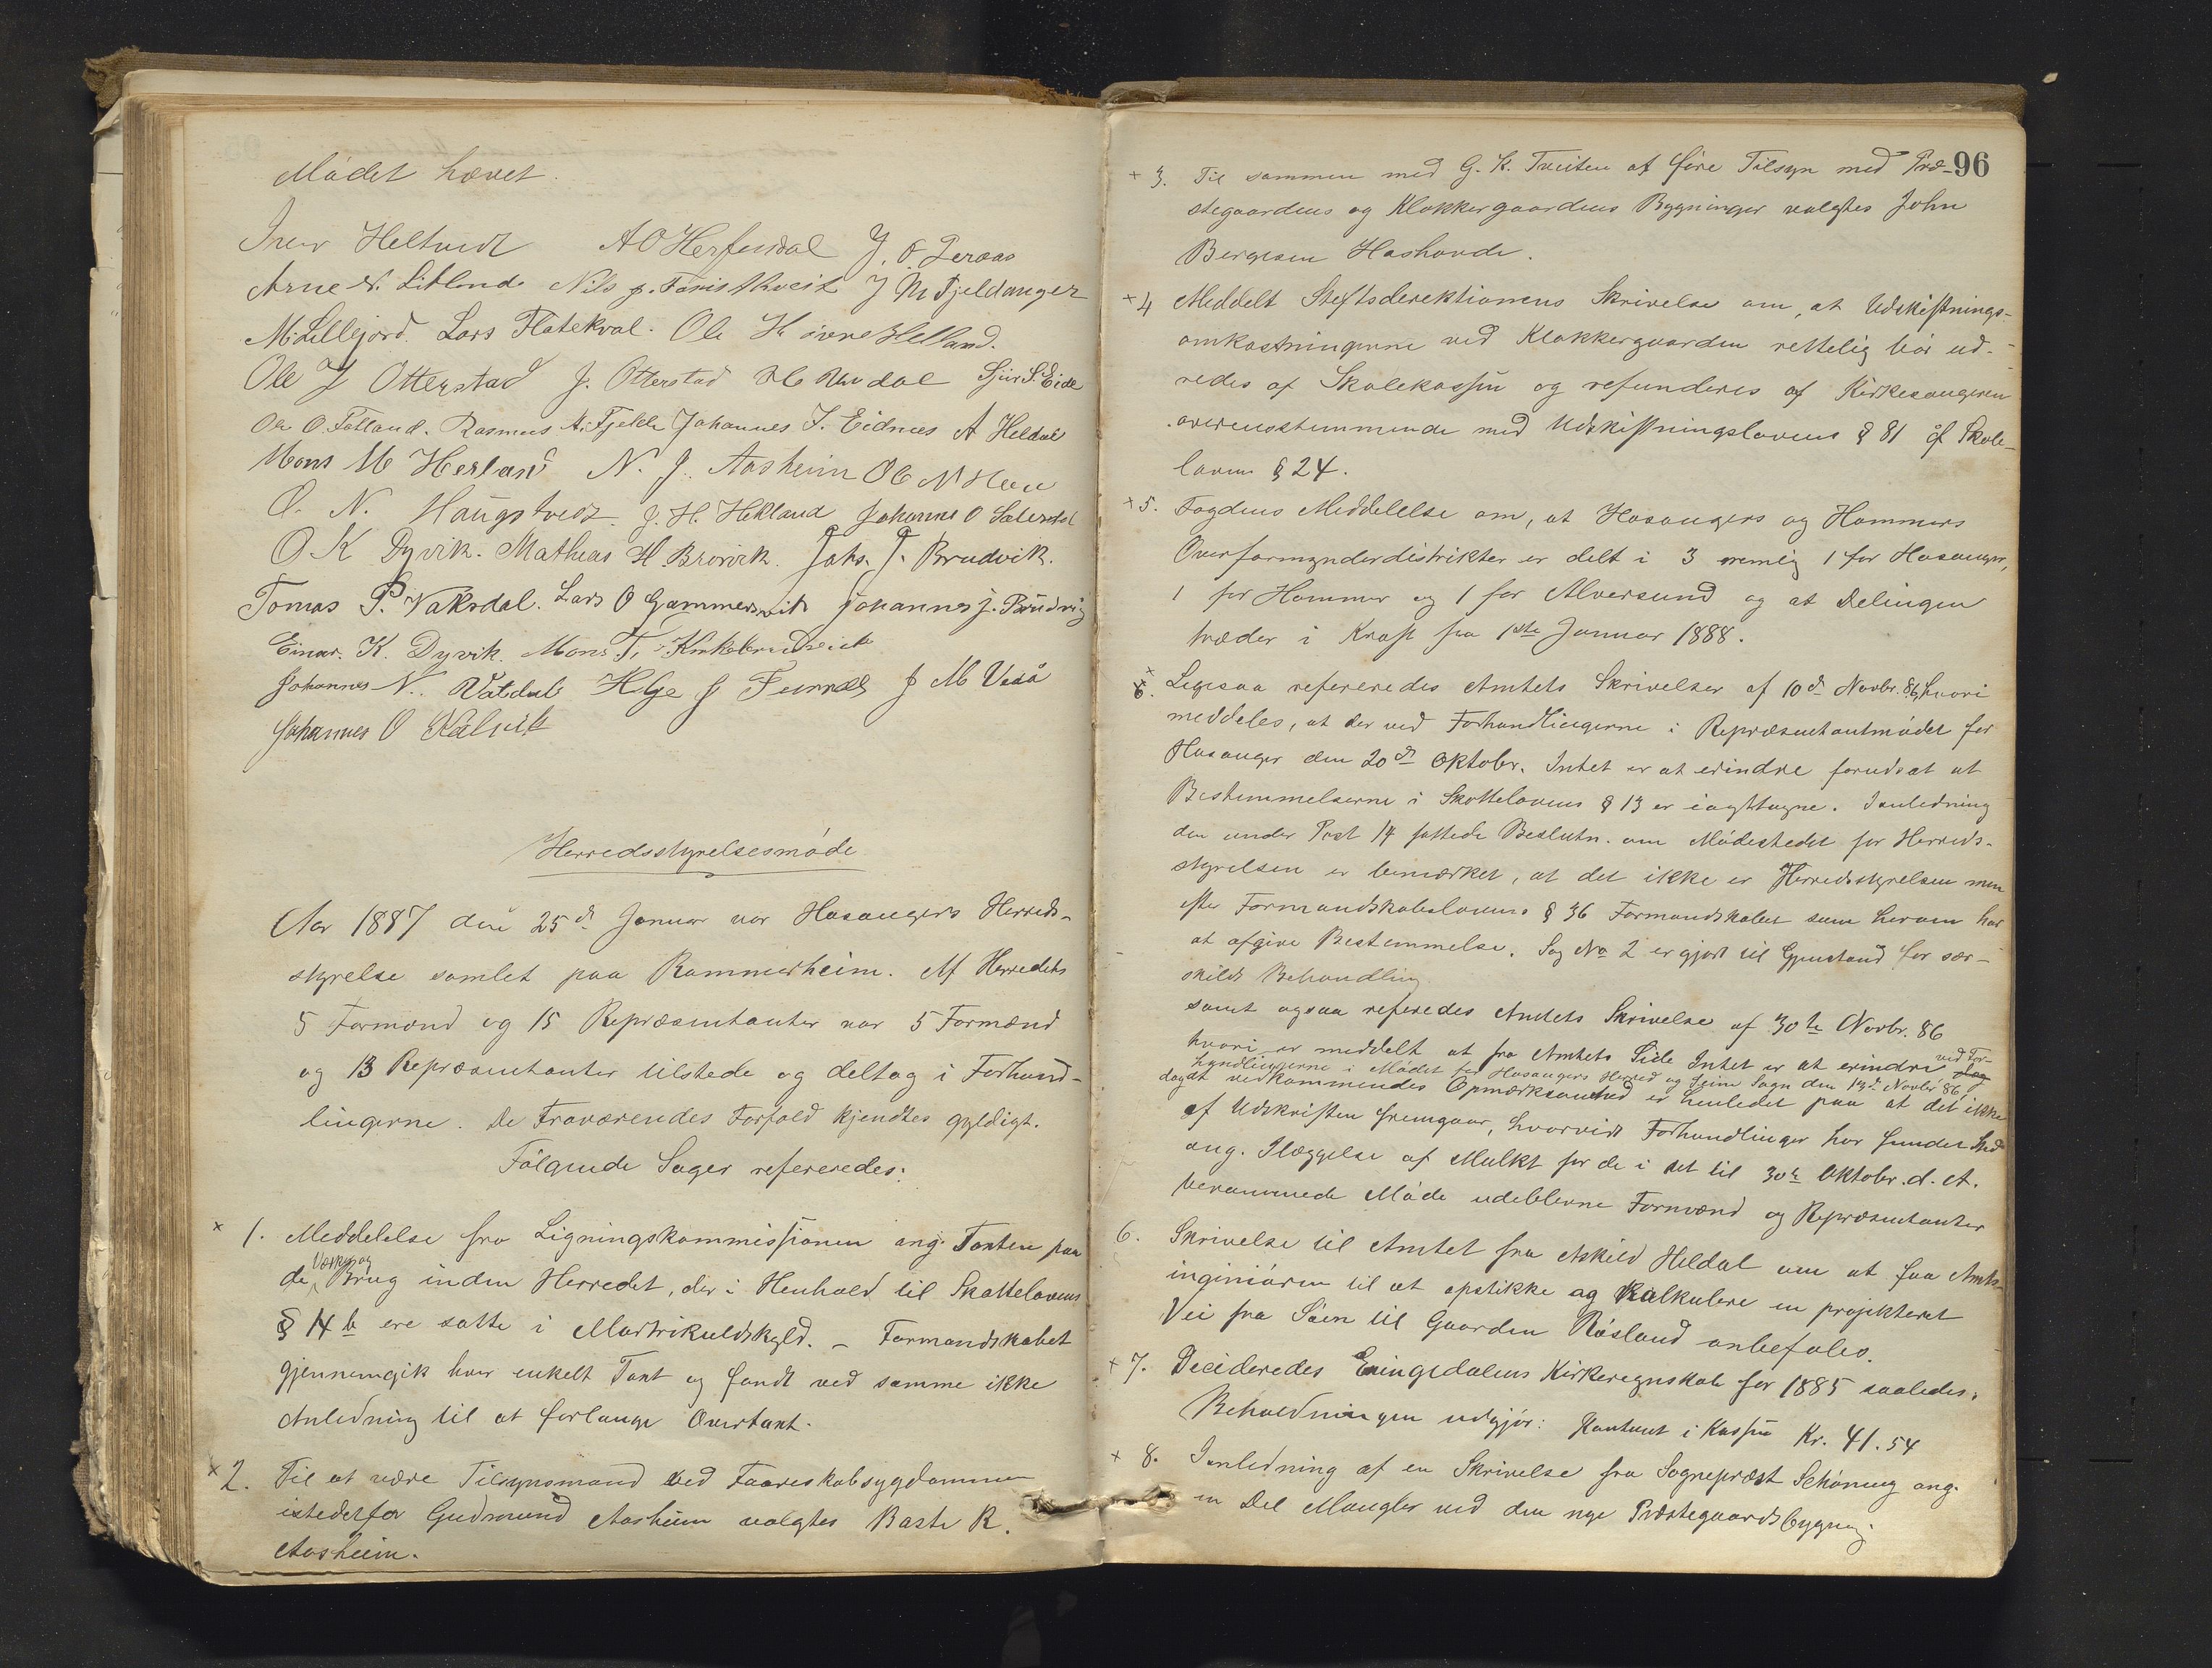 Mødet hævet.
Iver Heltvedt A O Herfindal J. O. Leraas
Arne N. Litland Nils J. Fonistkveit J M Fjeldanger
M. Lillejord. Lars Flatekval. Ole H øvre Helland.
Ole J Otterstad J. Otterstad Sjur S. Eide
Ole O. Fotland. Rasmus A. Fjelde Johannes J. Eidnæs A Heldal
Mons M Herland N. J. Aasheim Ole N Heen
O. N. Haugstvedt. J. H. Hekland Johannes O
O K Dyvik. Mathias H. Brørvik. Johs. J. Brudvik.
Tomas P. Vaksdal. Lars O Gammersvik Johannes J. Brudvig
Einar. K. Dyvik. Mons T.
Johannes N. Vatdal Helge J J M Vaaå
Johannes O Kalvik
Herredsstyrelsesmøde
Aar 1887 den 25de Januar var Hosangers Herreds-
styrelse samlet paa Rammerheim. Af Herredets
5 Formænd og 15 Repræsentanter var 5 Formænd
og 13 Repræsentanter tilstede og deltog i Forhand-
lingerne. De Fraværendes Forfald kjendtes gyldigt.
Følgende Sager refereredes:
x 1. Meddelelse fra Ligningskommissionen ang. Taxten paa
Værker og
de Brug inden Herredet, der i Henhold til Skattelovens
§ 14 b ere satte i Martrikulskyld. – Formandskabet
gjennemgik hver enkelt Taxt og fandt ved samme ikke
Anledning til at forlange Overtaxt.
x 2. Til at være Tilsynsmand ved Faareskabsygdommen
istedetfor Gudmund Aasheim valgtes Baste R.
Aasheim.
96
x 3. Til sammen med G. K. Tveiten at føre Tilsyn med Præ-
stegaardens og Klokkergaardens Bygninger valgtes John
Bergesen Hoshovde.
x 4 Meddelt Stiftsdirektionens Skrivelse om, at Udskiftnings-
omkostningerne ved Klokkergaarden rettelig bør ud-
redes af Skolekassen og refunderes af Kirkesangeren
overensstemmende med Udskiftningslovens § 81 cf Skole-
loven § 24.
x 5. Fogdens Meddelelse om, at Hosangers og Hammers
Overformynderdistrikter er delt i 3 nemlig 1 for Hosanger,
1 for Hammer og 1 for Alversund og at Delingen
træder i Kraft fra 1ste Januar 1888.
x 6. Ligesaa refereredes Amtets Skrivelser af 10de Novbr. 86, hvori
meddeles, at der ved Forhandlingerne i Repræsentantmødet for
Hosanger den 20de Oktobr. Intet er at erindre forudsat at
Bestemmelserne i Skattelovens § 13 er iagttagne. I anledning
den under Post 14 fattede Beslutn. om Mødestedet for Herreds-
styrelsen er bemærket, at det ikke er Herredsstyrelsen men
efter Formandskabslovens § 36 Formandskabet som herom har
at afgive Bestemmelse. Sag No 2 er gjort til Gjenstand for sær-
skildt Behandling
samt ogsaa referedes Amtets Skrivelse af 30te Novbr. 86
hvori er meddelt at fra Amtets Side Intet er at erindre ved For-
handlingerne i Mødet for Hosangers Herred og Seim Sogn den 13de Novbr 86,
dog at vedkommendes Opmærksomhed er henledet paa at det ikke
af Udskriften fremgaar, hvorvidt Forhandlinger har fundet Sted
ang. Ilæggelse af Mulkt for de i det til 30te Oktobr. d. A.
berammede Møde udeblevne Formænd og Repræsentanter
6. Skrivelse til Amtet fra Askild Heldal om at faa Amts-
inginiøren til at opstikke og kalkulere en projekteret
Vei fra Søen til Gaarden Røsland anbefales.
x 7. Decideredes Eksingedalens Kirkeregnskab for 1885 saaledes:
Beholdningen udgjør: Kontant i Kassen Kr. 41.54
x 8. I anledning af en Skrivelse fra Sognepræst Schøning ang.
en Del Mangler ved den nye Præstegaardsbygning